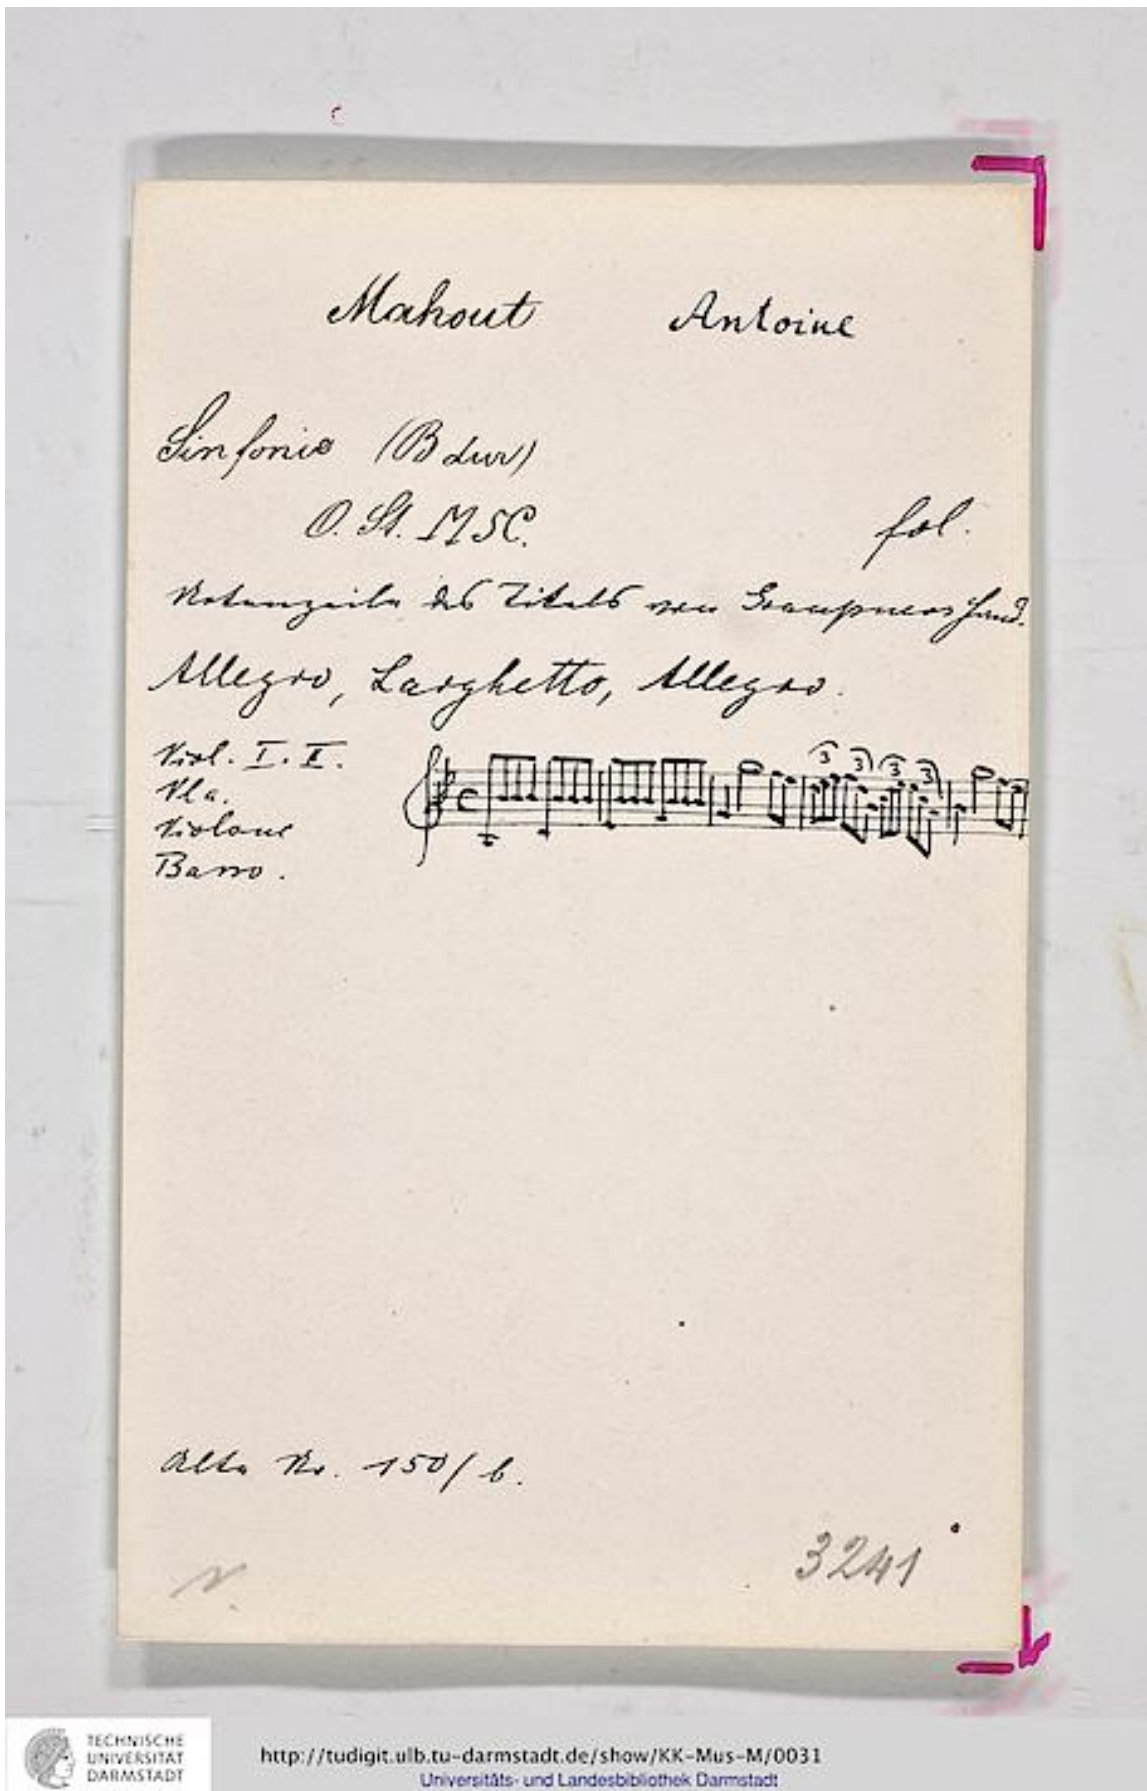 Mahout Antoine
Sinfonie (B dur)
O. St. MSC. fol.
Notenzeile des Titels von Graupners Hand.
Allegro, Larghetto, Allegro.
Viol. I. II.
Vla.
Violone
Basso.
3 3 3 3
Alte Nr. 150/6.
3241
TECHNISCHE
UNIVERSITÄT
DARMSTADT
http://tudigit.ulb.tu-darmstadt.de/show/KK-Mus-M/0031
Universitäts- und Landesbibliothek Darmstadt